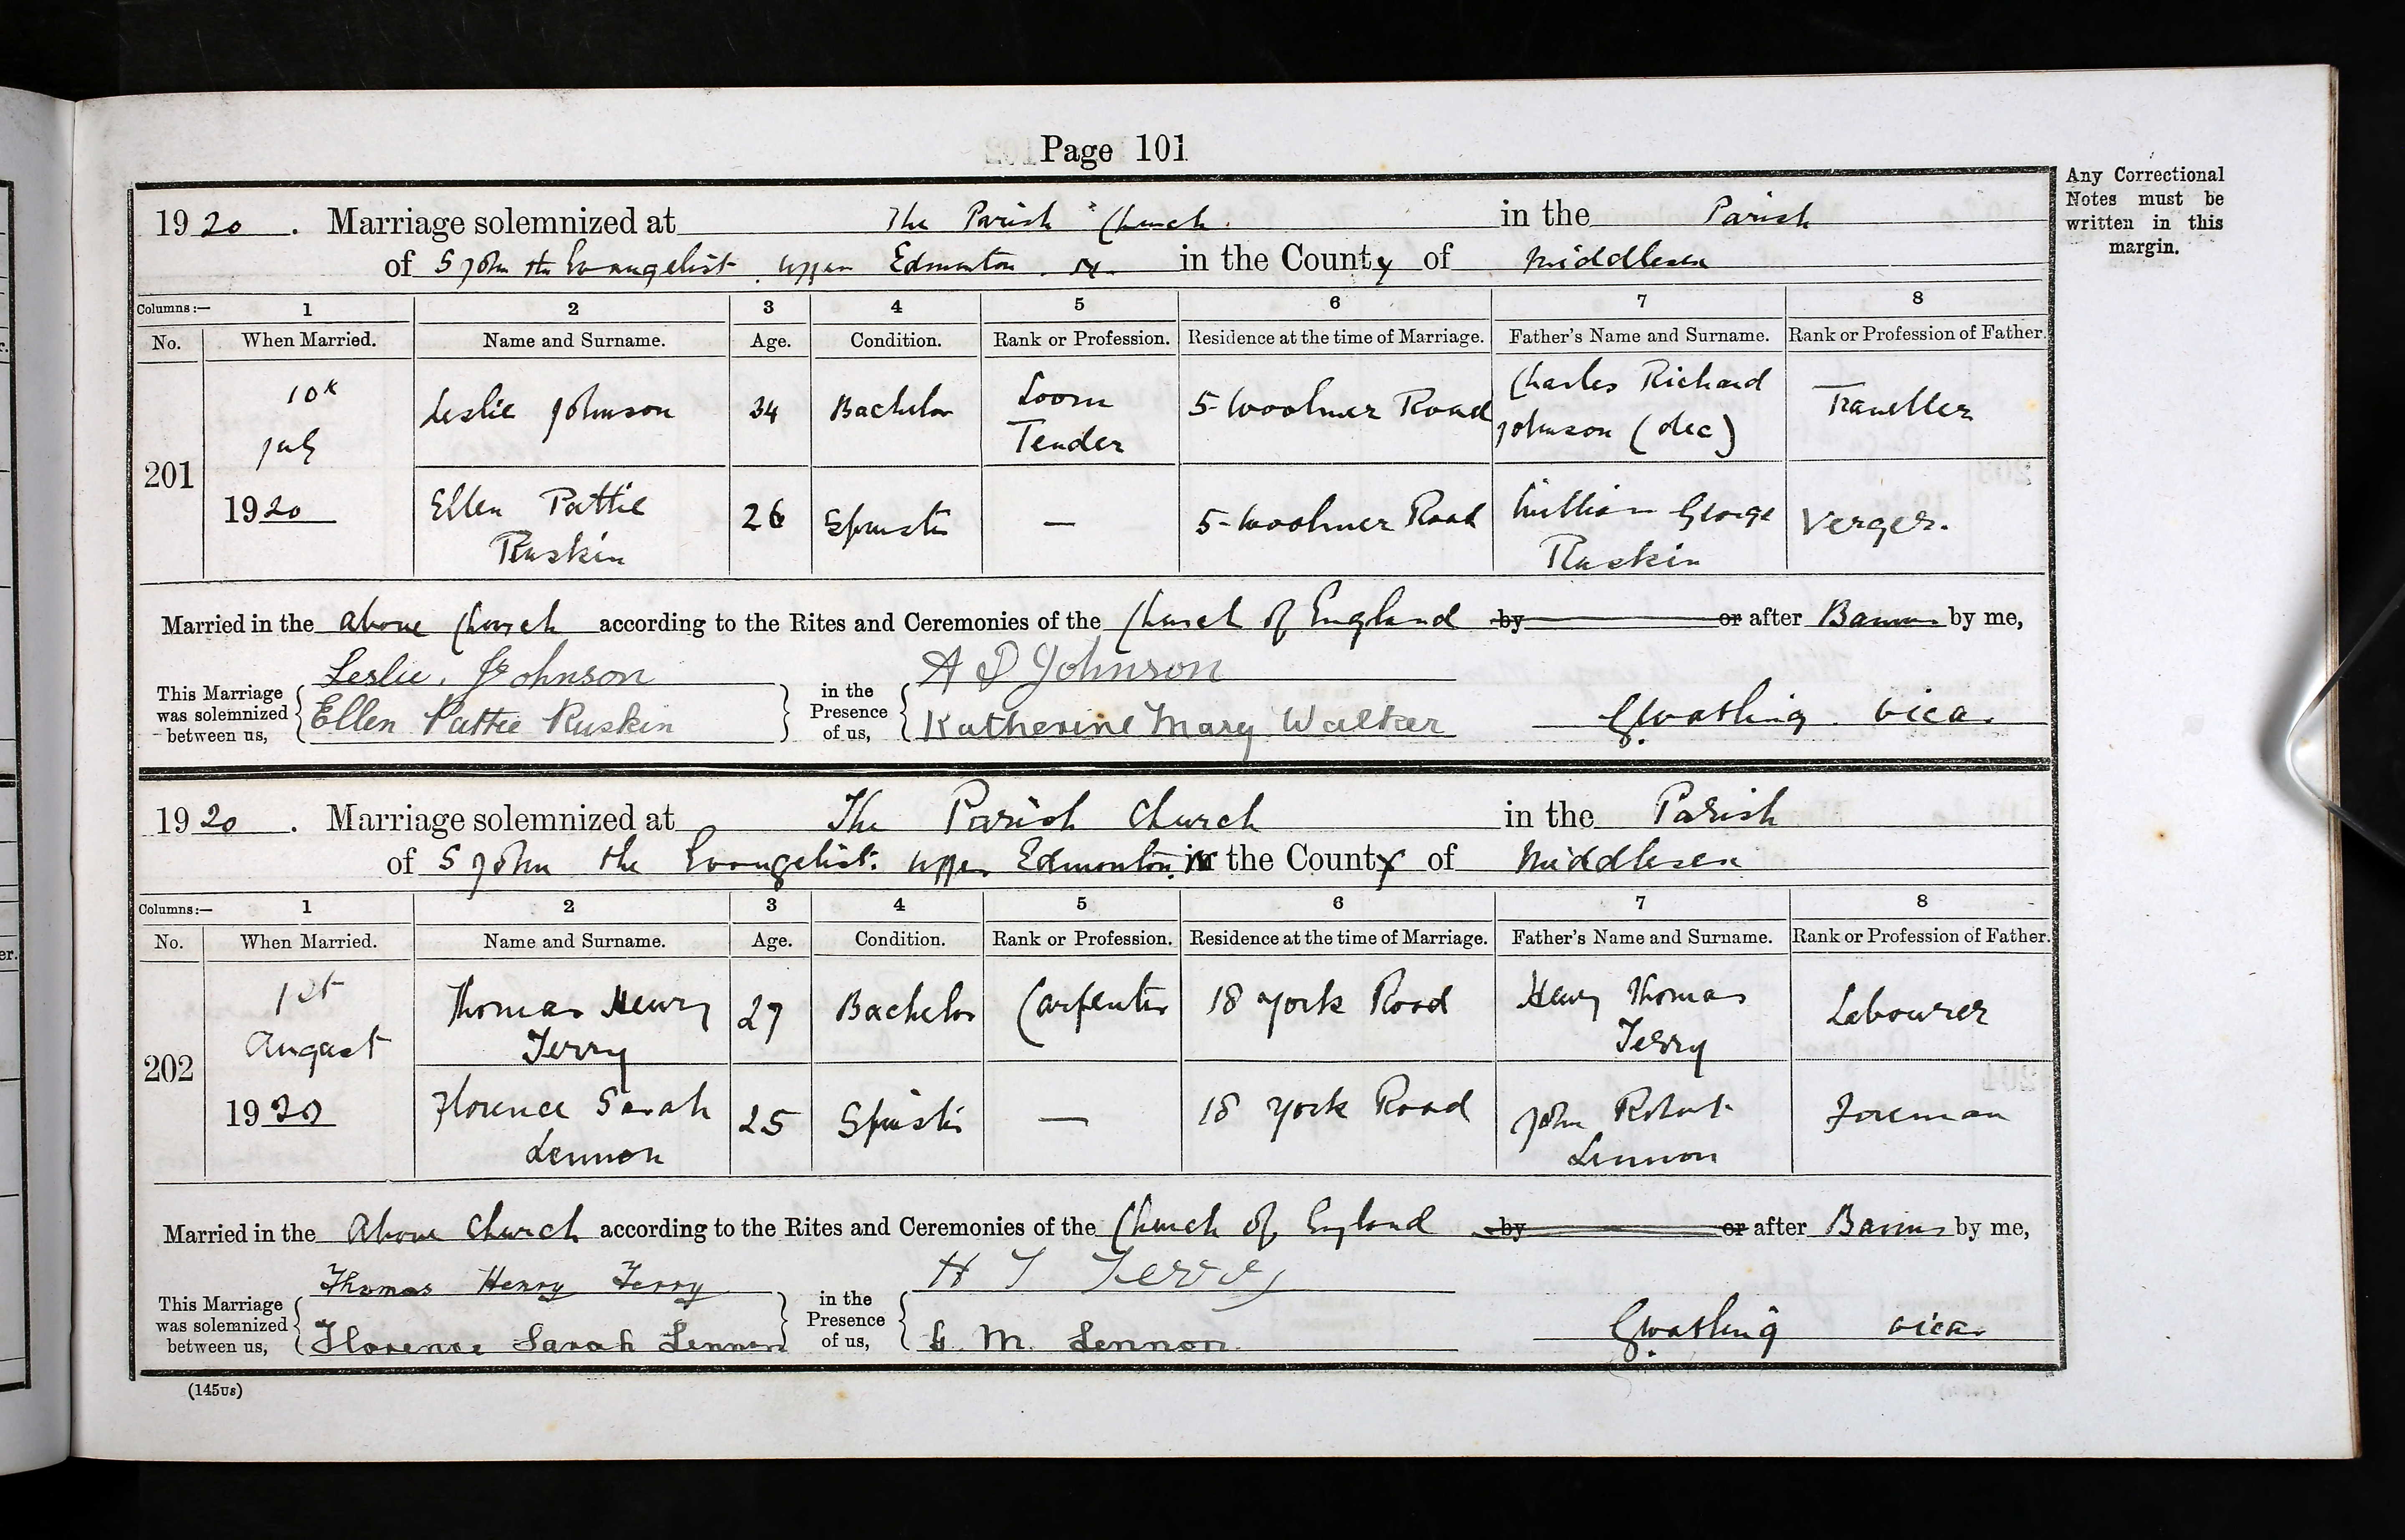 Page 101
Any Correctional
Notes must be
written in this
margin.
1920. Marriage solemnized at The Parish Church in the Parish
of S John the Evangelist Upper Edmonton in the County of Middlesex
Columns:— 1 2 3 4 5 6 7 8
No. When Married. Name and Surname. Age. Condition. Rank or Profession. Residence at the time of Marriage. Father's Name and Surname. Rank or Profession of Father.
201
10th
July
1920
Leslie Johnson 34 Bachelor Loom Tender 5 Woolmer Road Charles Richard Johnson (dec) Traveller
Ellen Pattie Ruskin 26 Spinster — 5 Woolmer Road William George Ruskin Verger.
Married in the above Church according to the Rites and Ceremonies of the Church of England by or after Banns by me,
This Marriage was solemnized between us, Leslie Johnson
Ellen Pattie Ruskin
in the Presence of us, A D Johnson
Katherine Mary Walker
Vicar
1920. Marriage solemnized at The Parish Church in the Parish
of S John the Evangelist. Upper Edmonton in the County of Middlesex
Columns:— 1 2 3 4 5 6 7 8
No. When Married. Name and Surname. Age. Condition. Rank or Profession. Residence at the time of Marriage. Father's Name and Surname. Rank or Profession of Father.
202
1st
August
1920
Thomas Henry Terry 27 Bachelor Carpenter 18 York Road Henry Thomas Terry Labourer
Florence Sarah Lennon 25 Spinster — 18 York Road John Robert Lennon Foreman
Married in the Above Church according to the Rites and Ceremonies of the Church of England by or after Banns by me,
This Marriage was solemnized between us, Thomas Henry Terry
Florence Sarah Lennon
in the Presence of us, H T Terry
G. M. Lennon
Vicar
(145US)